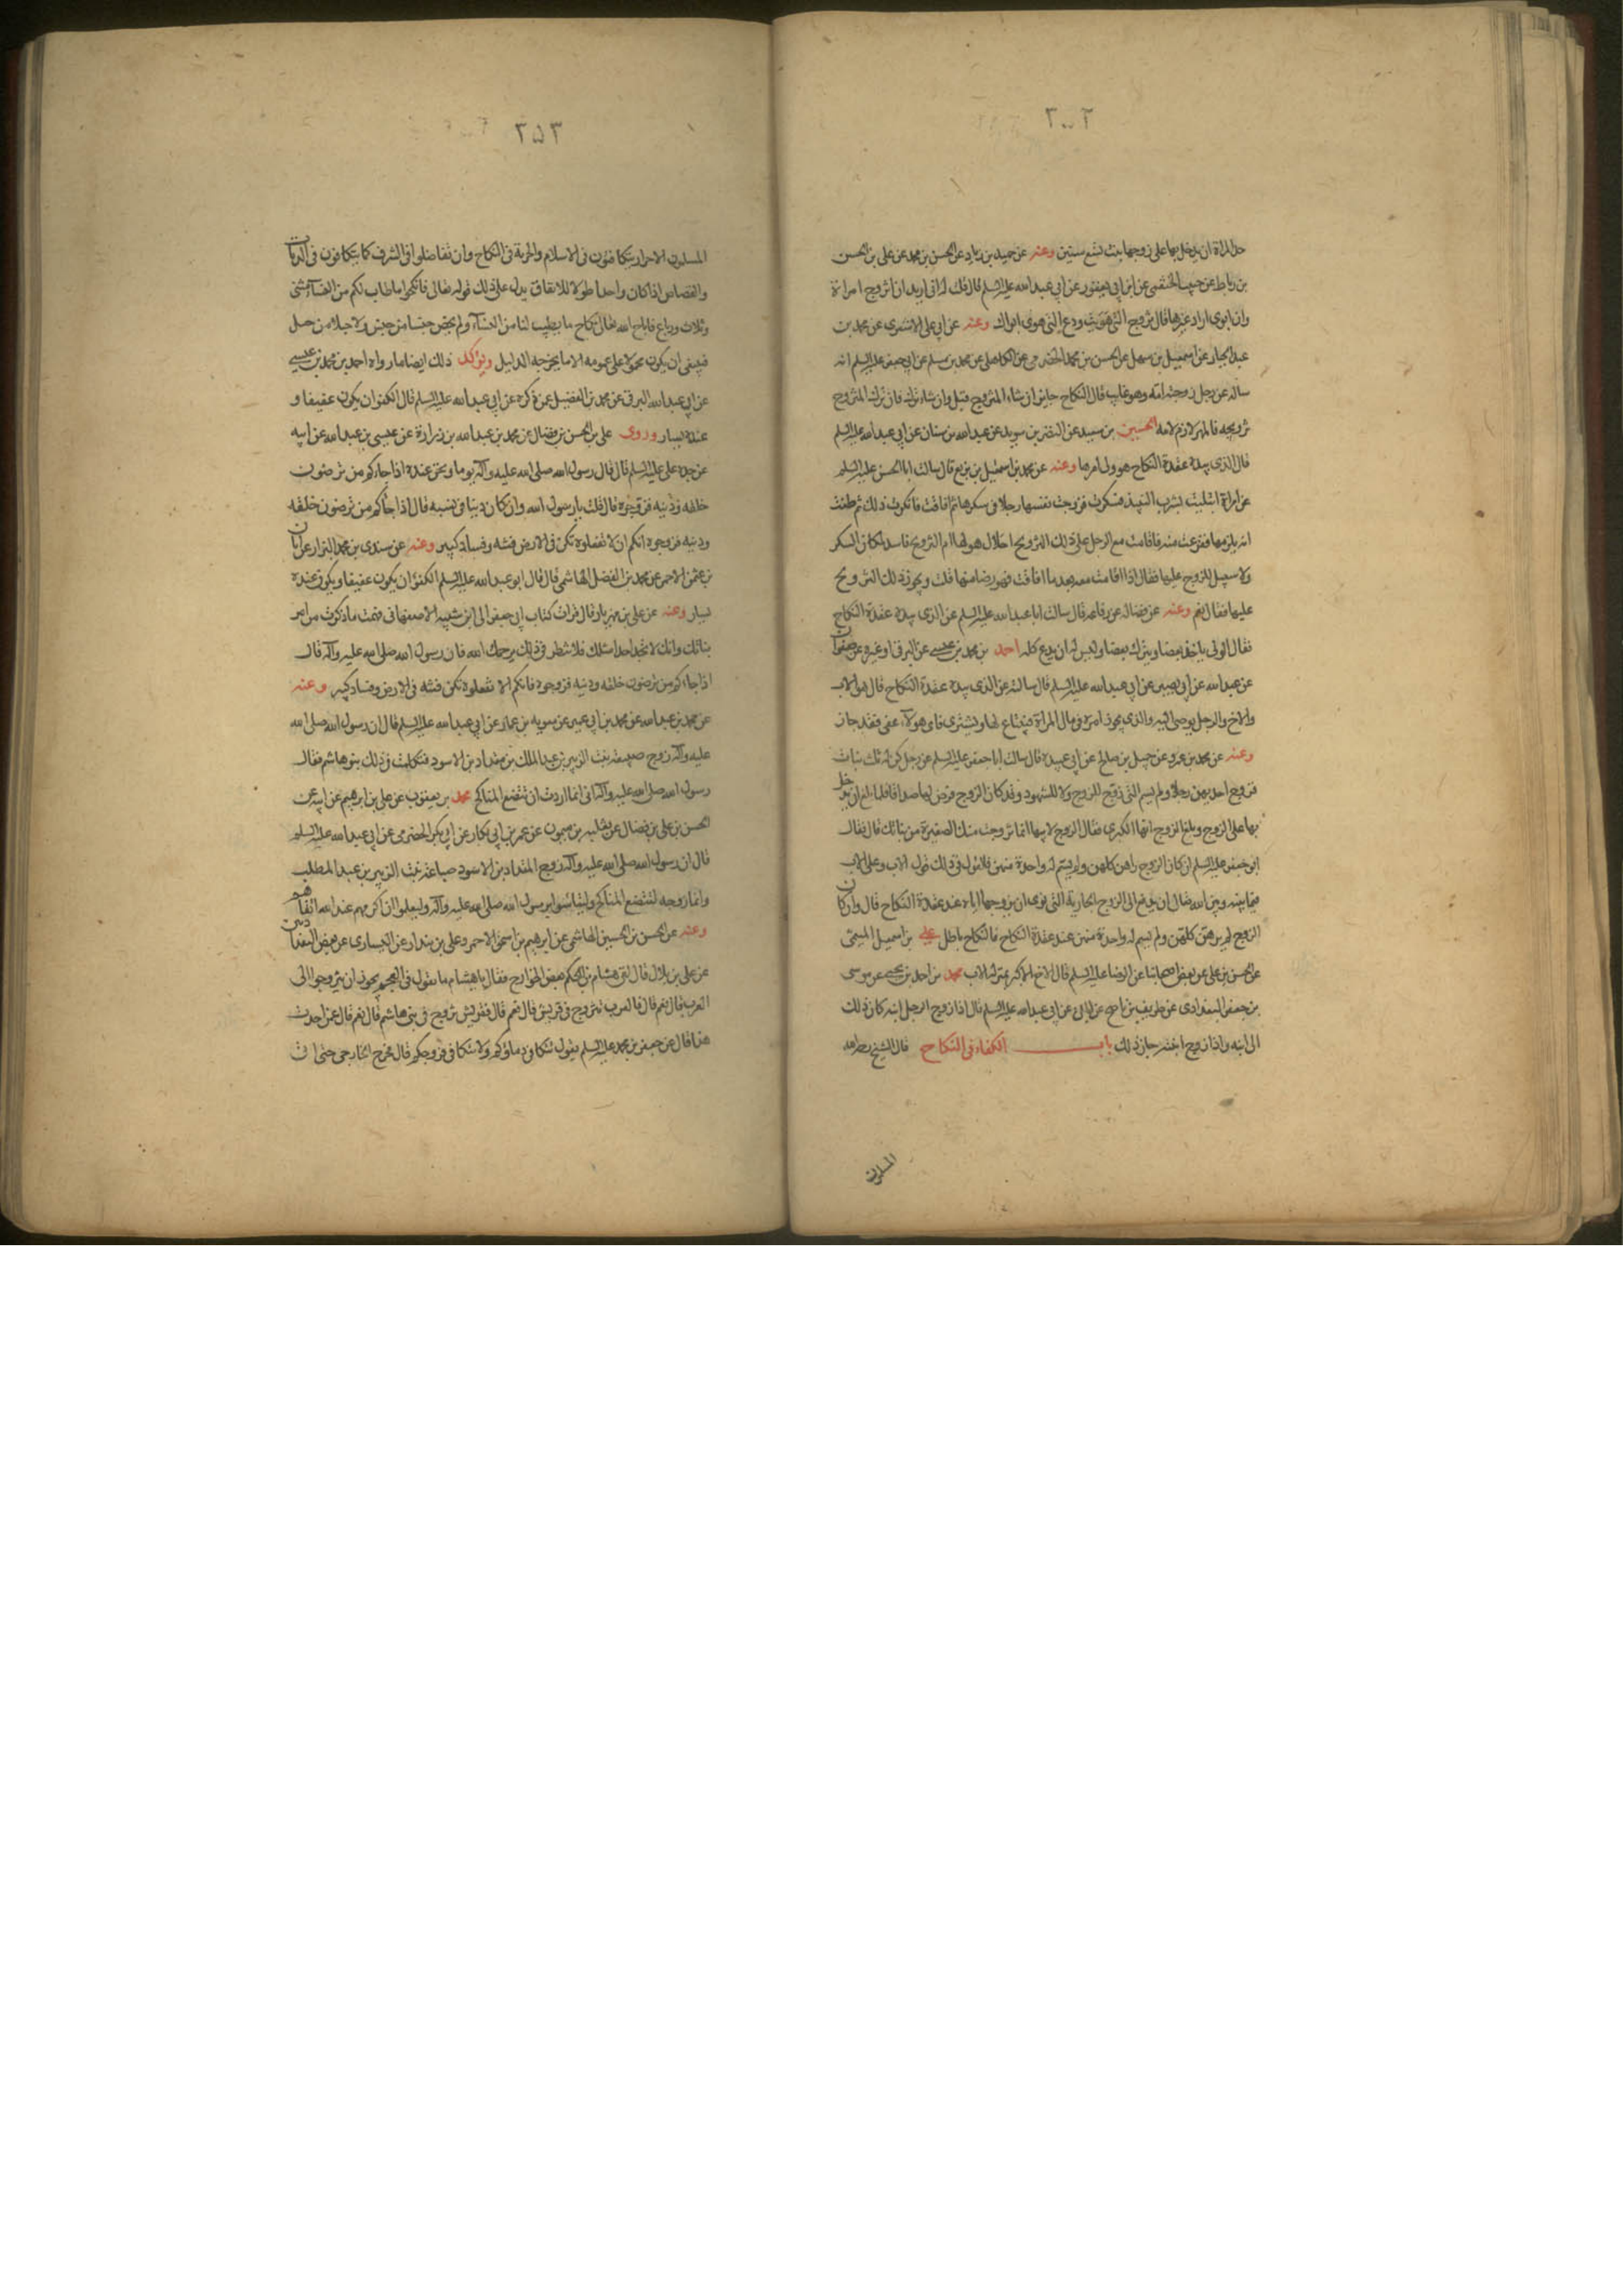 حد المراة ان يدخل بها على زوجها بنت تسع سنين وعنه عن حميد بن زياد عن الحسن بن محمد عن علي بن الحسن
بن رباط عن حبيب الخثعمي عن ابن ابي يعفور عن ابي عبد الله عليه السلم قال قلت له اني اريد ان اتزوج امراة
وان ابوي ارادا غيرها قال تزوج التي هويت ودع التي هوى ابواك وعنه عن ابي علي الاشعري عن محمد بن
عبد الجبار عن اسمعيل بن سهل عن الحسن بن محمد الحضرمي عن الكاهلي عن محمد بن مسلم عن ابي جعفر عليه السلم انه
ساله عن رجل زوجته امه وهو غايب قال النكاح جايز ان شاء المتزوج قبل وان شاء ترك فان ترك المتزوج
تزويجه فالمهر لازم لامه الحسين بن سعيد عن النضر بن سويد عن عبد الله بن سنان عن ابي عبد الله عليه السلم
قال الذي بيده عقدة النكاح هو ولي امرها وعنه عن محمد بن اسمعيل بن بزيع قال سالت ابا الحسن عليه السلم
عن امراة ابتليت بشرب النبيذ فسكرت فزوجت نفسها رجلا في سكرها ثم افاقت فانكرت ذلك ثم ظنت
انه يلزمها ففزعت منه فاقامت مع الرجل على ذلك التزويج احلال هو لها ام التزويج فاسد لمكان السكر
ولا سبيل للزوج عليها فقال اذا اقامت معه بعد ما افاقت فهو رضا منها قلت ويجوز ذلك التزويج
عليها فقال نعم وعنه عن فضاله عن رفاعه قال سالت ابا عبد الله عليه السلم عن الذي بيده عقدة النكاح
فقال الولي ياخذ بعضا ويترك بعضا وليس له ان يدع كله احمد بن محمد بن عيسى عن البرقي او غيره عن صفوان
عن عبد الله عن ابي بصير عن ابي عبد الله عليه السلم قال سالته عن الذي بيده عقدة النكاح قال هو الاب
والاخ والرجل يوصى اليه والذي يجوز امره في مال المراة فيبتاع لها ويشتري فاي هولاء عفى فقد جاز
وعنه عن محمد بن عمرو عن جميل بن صالح عن ابي عبيدة قال سالت ابا جعفر عليه السلم عن رجل كن له ثلث بنات
فزوج احديهن رجلا ولم يسم التي زوج للزوج ولا للشهود وقد كان الزوج فرض لها صداقا فلما بلغ ان يدخل
بها على الزوج وبلغ الزوج انها الكبرى فقال الزوج لابيها انما تزوجت منك الصغيرة من بناتك قال فقال
ابو جعفر عليه السلم ان كان الزوج راهن كلهن ولم يسم له واحدة منهن فالقول في ذلك قول الاب وعلى الاب
فيما بينه وبين الله تعالى ان يدفع الى الزوج الجارية التي نوى ان يزوجها اياه عند عقدة النكاح قال وان كان
الزوج لم يرهن كلهن ولم يسم له واحدة منهن عند عقدة النكاح فالنكاح باطل علي بن اسمعيل الميثمي
عن الحسن بن علي عن بعض اصحابنا عن الرضا عليه السلم قال الاخ الاكبر بمنزلة الاب محمد بن احمد بن يحيى عن موسى
بن جعفر البغدادي عن ظريف بن ناصح عن ابان عن ابي عبد الله عليه السلم قال اذا زوج الرجل ابنه كان ذلك
الى ابنه واذا زوج ابنته جاز ذلك باب الكفاءة في النكاح قال الشيخ رحمه الله
المسلمون
٢٥٣
المسلمون الاحرار يتكافئون في الاسلام والحرية في النكاح وان تفاضلوا في الشرف كما يتكافون في الديات
والقصاص اذا كان واحدا طولا للانفاق يدل على ذلك قوله تعالى فانكحوا ما طاب لكم من النساء مثنى
وثلاث ورباع فاباح الله تعالى نكاح ما يطيب لنا من النساء ولم يخص جنسا من جنس ولا جيلا من جيل
فينبغي ان يكون محمولا على عمومه الا ما يخرجه الدليل ويؤكد ذلك ايضا ما رواه احمد بن محمد بن عيسى
عن ابي عبد الله البرقي عن محمد بن الفضيل عمن ذكره عن ابي عبد الله عليه السلم قال الكفؤ ان يكون عفيفا و
عنده يسار وروى علي بن الحسن بن فضال عن محمد بن عبد الله بن زرارة عن عيسى بن عبد الله عن ابيه
عن جده على عليه السلم قال قال رسول الله صلى الله عليه وآله يوما ونحن عنده اذا جاءكم من ترضون
خلقه ودينه فزوجوه قال قلت يا رسول الله وان كان دنيا في نسبه قال اذا جاءكم من ترضون خلقه
ودينه فزوجوه انكم ان لا تفعلوه تكن فتنة في الارض وفساد كبير وعنه عن سندي بن محمد البزاز عن ابان
بن عثمن الاحمر عن محمد بن الفضل الهاشمي قال قال ابو عبد الله عليه السلم الكفؤ ان يكون عفيفا ويكون عنده
يسار وعنه عن علي بن مهزيار قال قرات كتاب ابي جعفر الى ابن شيبه الاصبهاني فهمت ما ذكرت من امر
بناتك وانك لا تجد احدا مثلك فلا تنظر في ذلك يرحمك الله فان رسول الله صلى الله عليه وآله قال
اذا جاءكم من ترضون خلقه ودينه فزوجوه فانكم الا تفعلوه تكن فتنة في الارض وفساد كبير وعنه
عن محمد بن عبد الله عن محمد بن ابي عمير عن معويه بن عمار عن ابي عبد الله عليه السلم قال ان رسول الله صلى الله
عليه وآله زوج ضبيعة بنت الزبير بن عبد الملك بن مقداد بن الاسود فتكلمت في ذلك بنو هاشم فقال
رسول الله صلى الله عليه وآله اني انما اردت ان تتضع المناكح محمد بن يعقوب عن علي بن ابرهيم عن ابيه عن
الحسن بن علي بن فضال عن ثعلبه بن ميمون عن عمر بن ابي بكار عن ابي بكر الحضرمي عن ابي عبد الله عليه السلم
قال ان رسول الله صلى الله عليه وآله زوج المقداد بن الاسود ضباعة بنت الزبير بن عبد المطلب
وانما زوجه لتتضع المناكح وليتاسوا برسول الله صلى الله عليه وآله وليعلموا ان اكرمهم عند الله اتقاهم
وعنه عن الحسن بن الحسين الهاشمي عن ابرهيم بن اسحق الاحمر وعلي بن بندار عن السياري عن بعض البغداديين
عن علي بن بلال قال لقي هشام بن الحكم بعض الخوارج فقال يا هشام ما تقول في العجم يجوز ان يتزوجوا الى
العرب قال نعم قال فالعرب تتزوج في قريش قال نعم قال فقريش تزوج في بني هاشم قال نعم قال عمن اخذت
هذا قال عن جعفر بن محمد عليه السلم يقول تتكافى دماؤكم ولا تتكافى فروجكم قال فخرج الخارجي حتى اتى